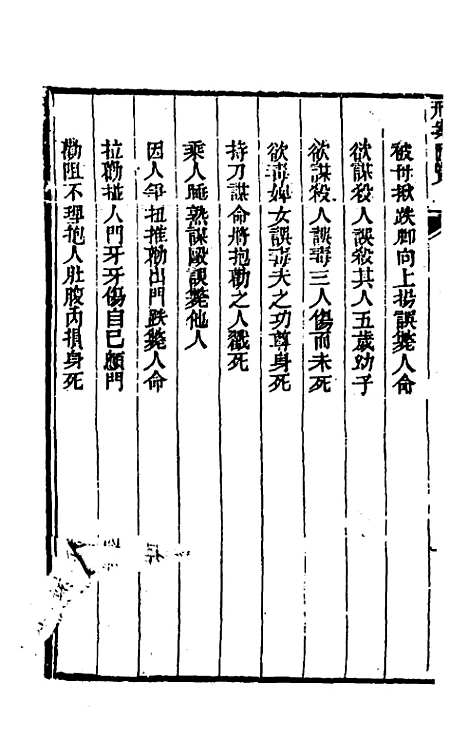 刑案匯覽
被母揪跌脚向上揚誤斃人命
欲謀殺人誤殺其人五歲幼子
欲謀殺人誤毒三人傷而未死
欲毒婢女誤毒夫之功尊身死
持刀謀命將抱勸之人戳死
乘人睡熟謀毆誤斃他人
因人爭扭推勸出門跌斃人命
拉勸掽人門牙牙傷自己顖門
勸阻不理抱人肚腹內損身死